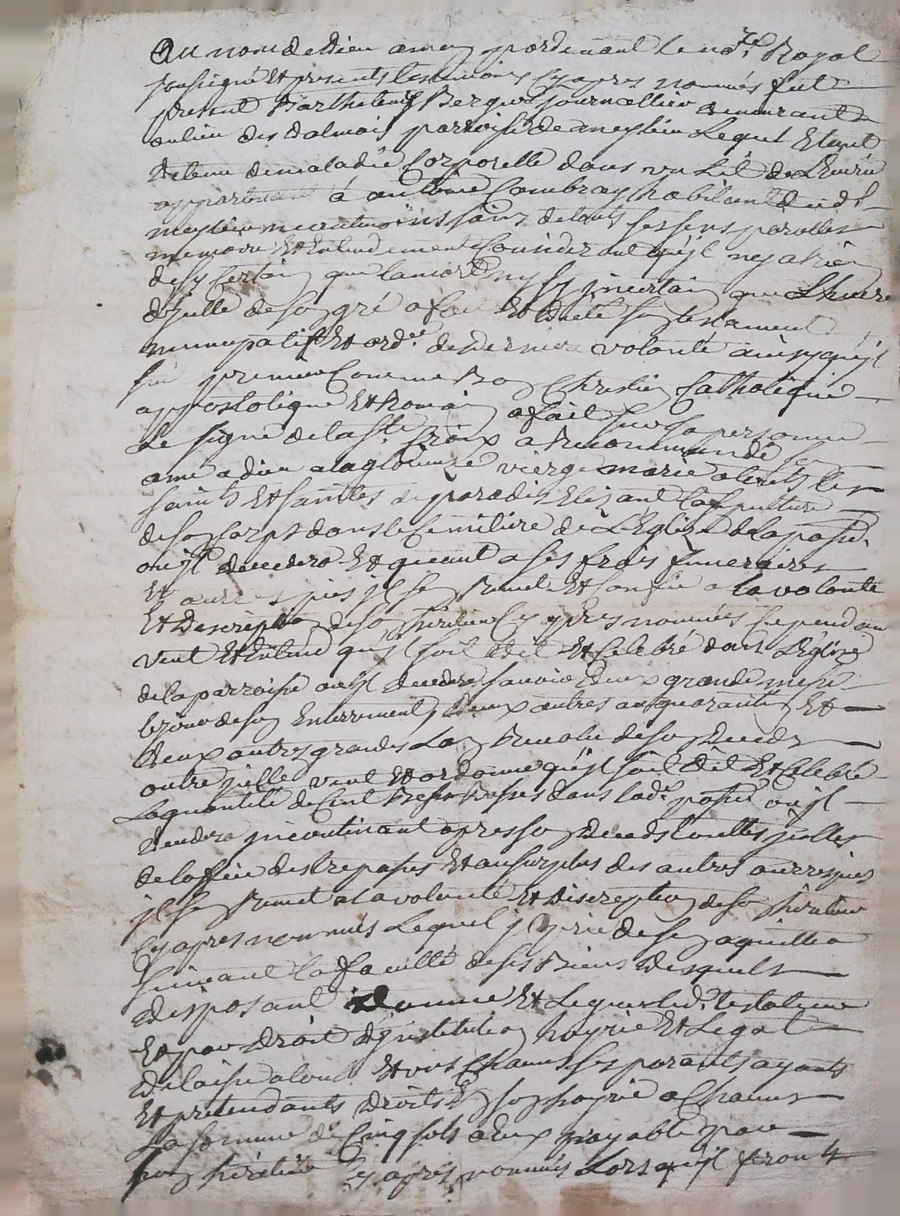 Au nom de Dieu amen pardevant le no.re Royal
soussigné Et presents les temoins cy apres nommés fut
present Barthelemy Berger journallier demeurant
au lieu des dalmais parroisse de meylieu Lequel Etant
detenu de maladie Corporelle dans un Lit
appartenant à antoine Cambray habitant dud.
meylieu neantmoins sans de touts ses sens parolles
memoire Et Entendement Considerant qu'jl ny a rien
de sy Certain que la mort ny sy jncertain que L'heure
d'jcelle de son gré a fait Et dicté son testament
nuncupatif Et ord.ce de derniere volonté ainsy qu'jl
suit premier Comme Bon Chrestien Catholique
appostolique Et Romain a fait sur sa personne
Le signe de la Ste Croix a Recommandé
ame a dieu a la glorieuze vierge marie a touts les
saints Et saintes de paradis Elizant sa sepulture
de son Corps dans le Cimetiere de L'Eglise de la paroisse
ou jl decedera Et quant a ses frais funeraires
Et œuvres pies jl sen Remet Et Confie a la volonté
Et Discreption de son heritier Cy apres nommés Cependant
veut Et Entend qu'jl soit dit Et Celebré dans L'Eglise
de la parroisse ou jl decedera savoir deux grande messe
le jour de son Enterrement, deux autres au quarantin Et
deux autres grandes L'an Revolu de son Deceds
outre jcelle veut Et ordonne qu'jl soit dit Et Celebré
La quantité de Cent Messes Basses dans lad. paroisse ou jl
decedera jncontinant apres son deceds touttes jcelles
de la fin des trepassés Et au surplus des autres œuvres pies
jl sen Remet a la volonté Et discreption de son heritier
Cy apres nommés Lequel jl prie de sen aquitter
suivant La faculté de ses Biens desquels
disposant donne Et Legue led. testateur
Et par droit d'jnstitution hoyrie Et Legat
delaisse a tous Et uns Chacun ses parants ayants
Et pretendants droits En son hoyrie a Chacun
La somme de Cinq sols a Eux payable par
son heritier Cy apres nommés Lorsqu'jl seront